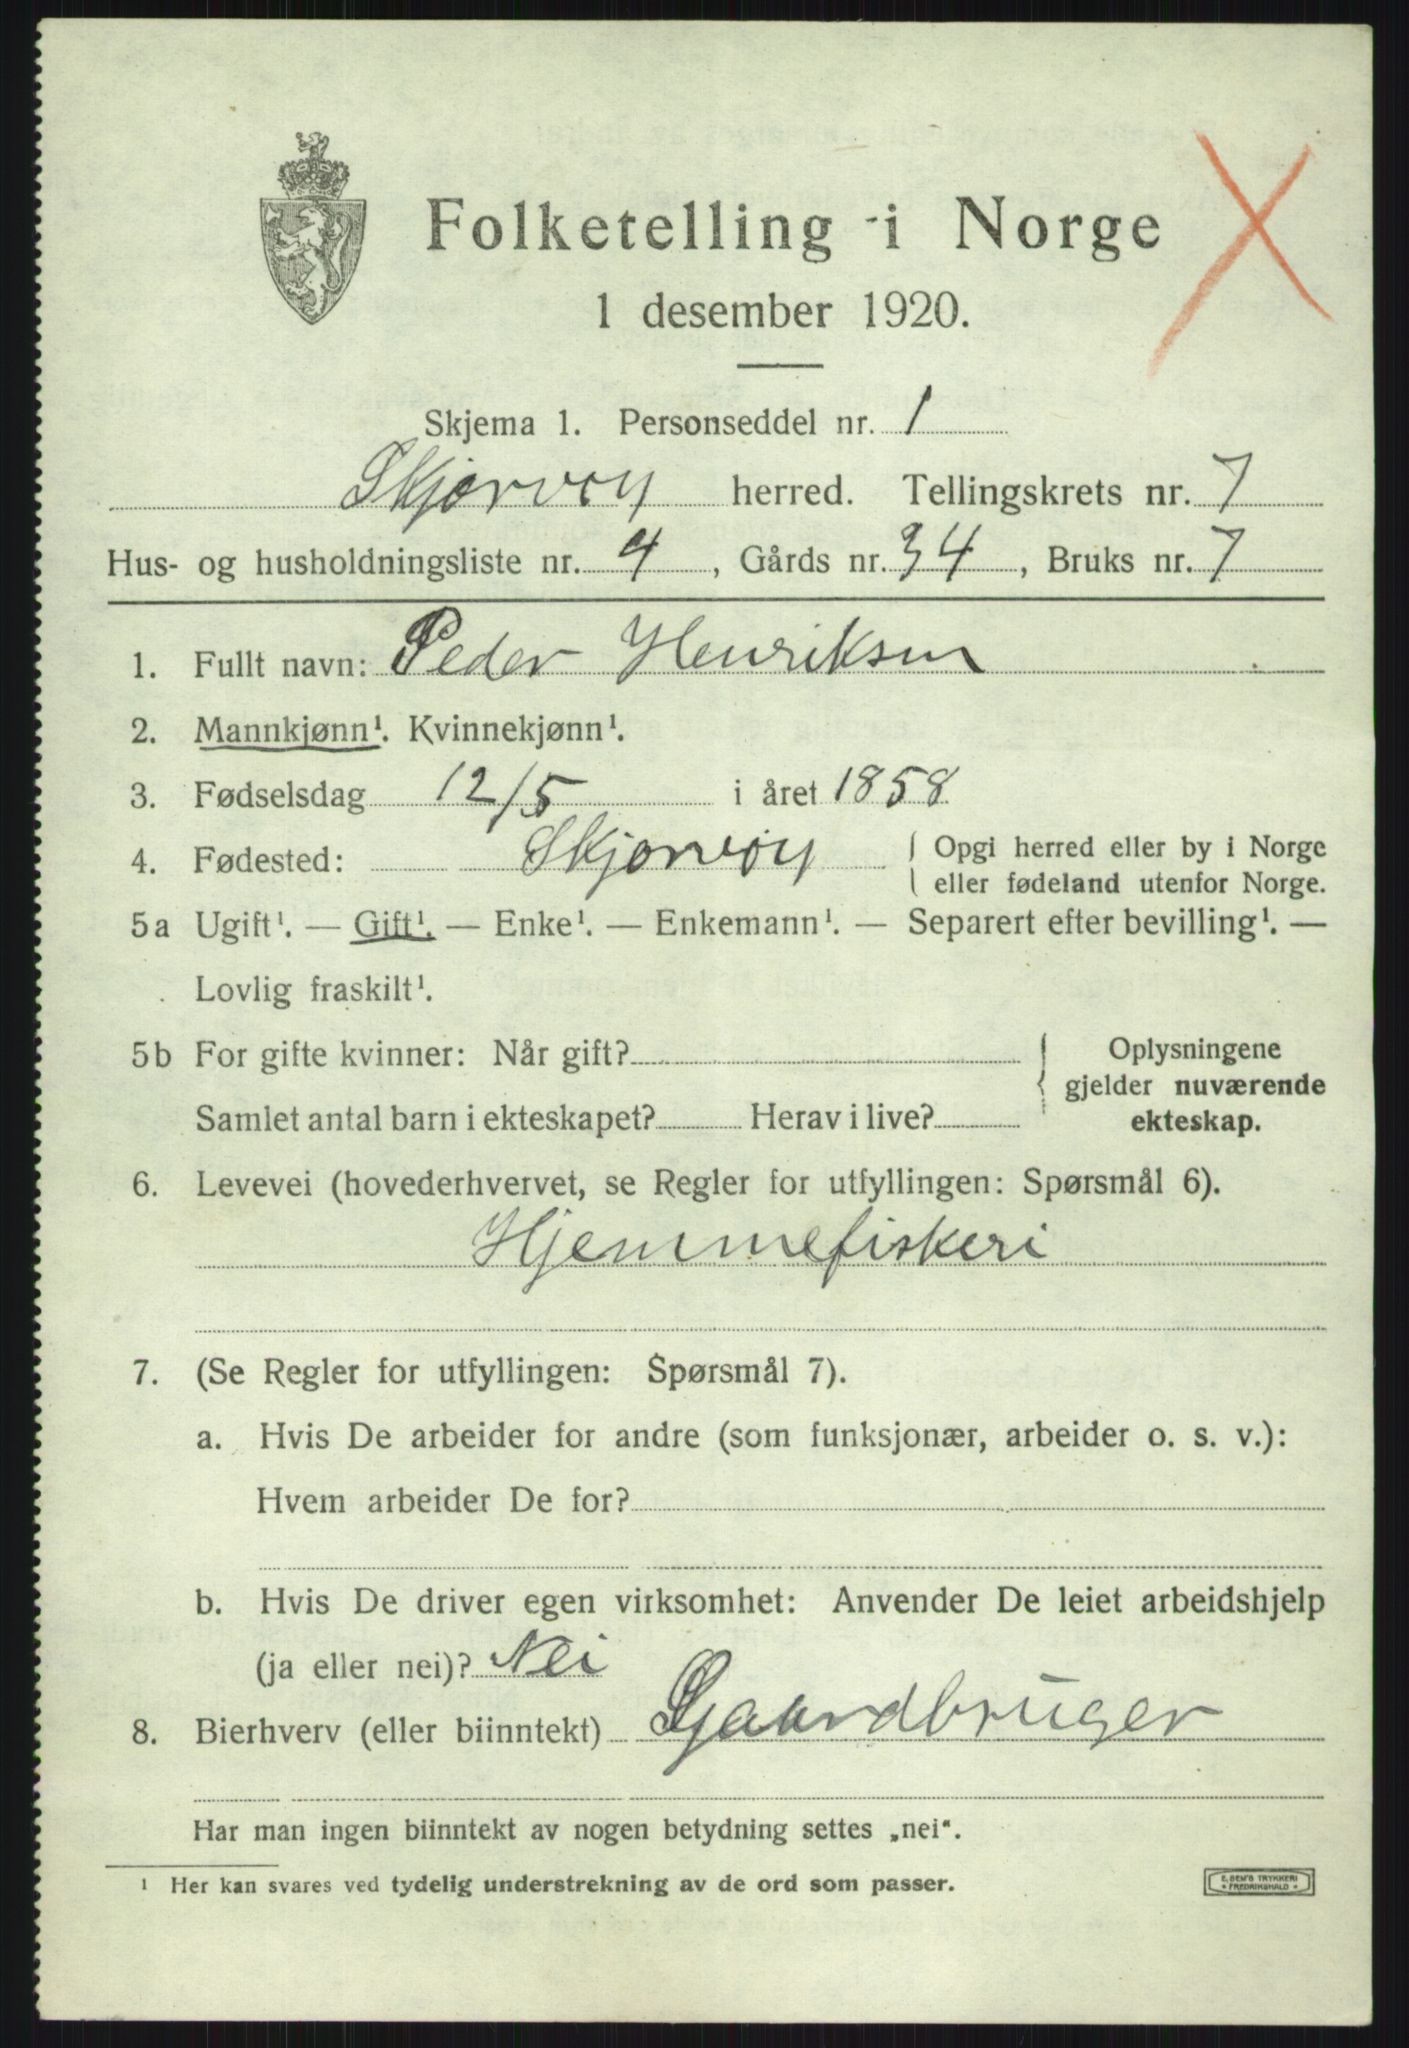 Folketelling i Norge
1 desember 1920.
Skjema 1. Personseddel nr. 1
Skjørvøy herred. Tellingskrets nr. 7
Hus- og husholdningsliste nr. 4, Gårds nr. 34, Bruks nr. 7
1. Fullt navn: Peder Henriksen
2. Mannkjønn¹. Kvinnekjønn¹.
3. Fødselsdag 12/5 i året 1858
4. Fødested: Skjørvøy { Opgi herred eller by i Norge
eller fødeland utenfor Norge.
5a Ugift¹. — Gift¹. — Enke¹. — Enkemann¹. — Separert efter bevilling¹. —
Lovlig fraskilt¹.
5b For gifte kvinner: Når gift?
Samlet antal barn i ekteskapet? Herav i live?
Oplysningene
gjelder nuværende
ekteskap.
6. Levevei (hovederhvervet, se Regler for utfyllingen: Spørsmål 6).
Hjemmefiskeri
7. (Se Regler for utfyllingen: Spørsmål 7).
a. Hvis De arbeider for andre (som funksjonær, arbeider o. s. v.):
Hvem arbeider De for?
b. Hvis De driver egen virksomhet: Anvender De leiet arbeidshjelp
(ja eller nei)? Nei
8. Bierhverv (eller biinntekt) Gaardbruger
Har man ingen biinntekt av nogen betydning settes „nei“.
¹ Her kan svares ved tydelig understrekning av de ord som passer.
E. SEM'S TRYKKERI
* FREDRIKSHALD *